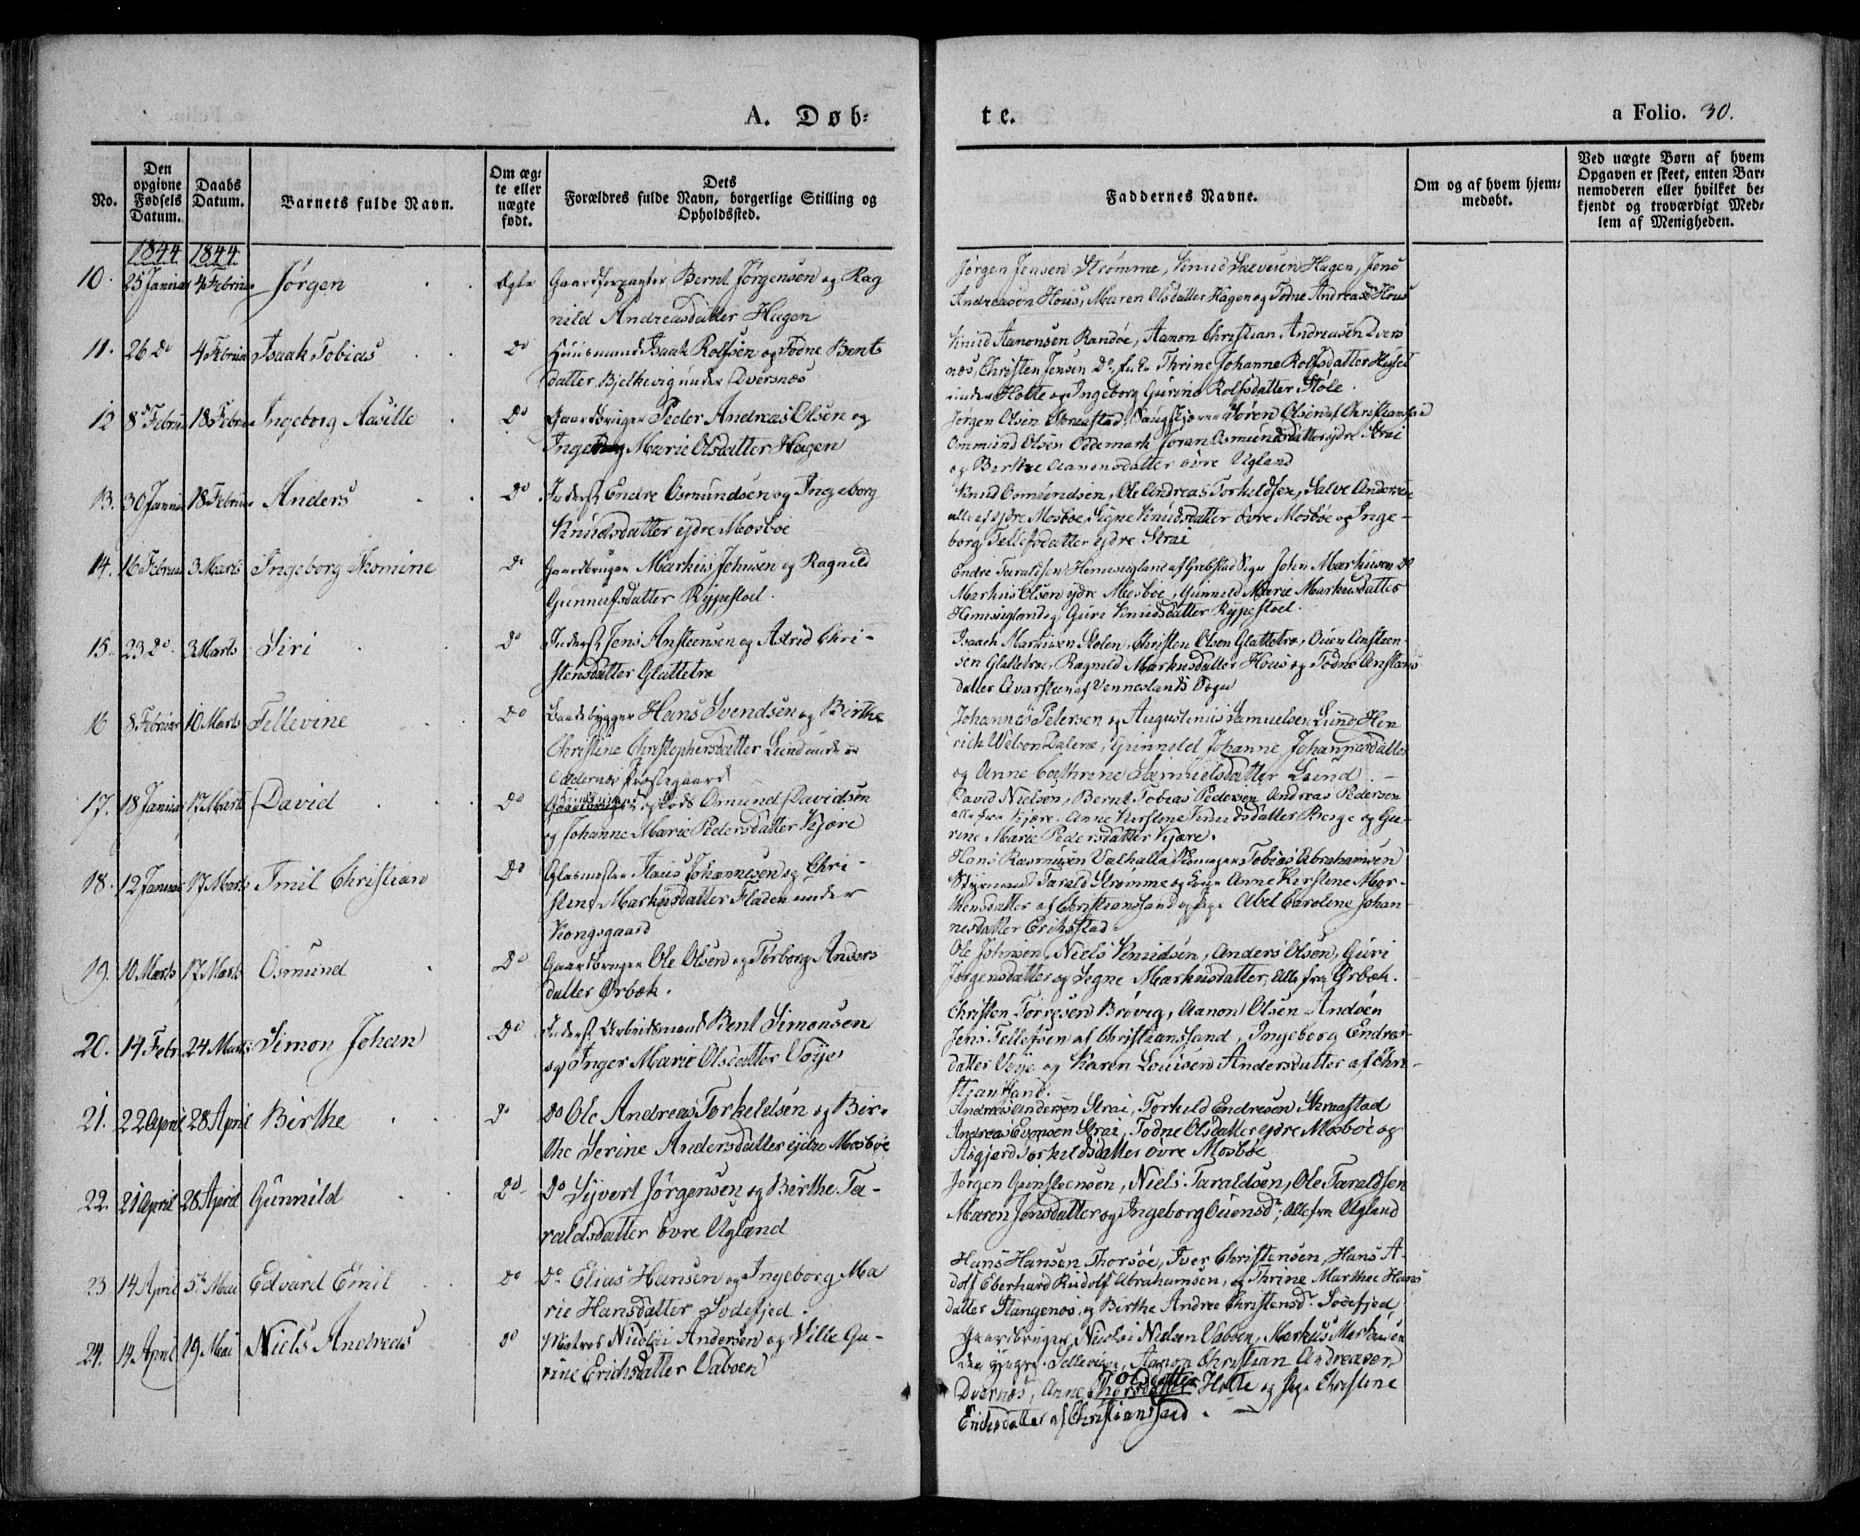 A. Døb-
te.
a Folio. 30.
No.
Den opgivne Fødsels Datum.
Daabs Datum.
Barnets fulde Navn.
Om æg-te eller nægte født.
Dets Forældres fulde Navn, borgerlige Stilling og Opholdssted.
Faddernes Navne.
Om og af hvem hjem-medøbt.
Ved nægte Børn af hvem Opgaven er skeet, enten Bar-nemoderen eller hvilket be-kjendt og troværdigt Med-lem af Menigheden.
1844 1844
10. 25 Januar 4 Februar Jørgen Ægte Gaardforpagter Bernt Jørgensen og Rag
nild Andreasdatter Hagen
Jørgen Jensen Strømme, Knud Salvesen Hagen, Jens
Andreasen Hous, Maren Olsdatter Hagen og Todne Andreasd Hous
11. 26 Do 4 Februar Isaak Tobias Do Huusmand Isaak Rolfsen og Todne Bents
datter, Bjelkevig under Dversnæs
Knud Aanonsen Randøe, Aanon Christian Andreasen Dvers
næs, Christen Jensen Do, Thrine Johanne Rolfsdatter
under Holte og Ingeborg Gurine Rolfsdatter Støle.
12 8de Februar 18 Februar Ingeborg Aasille Do Gaardbruger Peder Andreas Olsen og
Ingeborg Marie Olsdatter Hagen
Jørgen Olsen Skraastad, Søren Olsen af Christiansand
Ommund Olsen Oddemark, Joran Osmundsdatter ydre Strai
og Birthe Aanonsdatter øvre Ugland
13. 30 Januar 18 Februar Anders Do Inderst Endre Osmundsen og Ingeborg
Knudsdatter ydre Mosbøe
Knud Osmundsen, Ole Andreas Torkeldsen, Salve Andersen
alle af ydre Mosbøe, Signe Knudsdatter øvre Mosbøe og Inge-
borg Tellefsdatter ydre Strai
14. 16 Februar 3 Marts Ingeborg Thomine Do Gaardbruger Markus Johnsen og Ragnild
Gunnufsdatter Rypestøl.
Endre Taraldsen Homeugland af Greipstad Sogn John Markusen Do
Markus Olsen ydre Mosbøe, Gunnild Marie Markusdatter
og Guri Knudsdatter Rypestøl.
15. 23 Do. 3 Marts Siri Do Inderst Jens Ansteensen og Astrid Chri-
stensdatter Glattetre
Isaach Markusen Stolen, Christen Olsen Glattetre, Ouen Ansteen-
sen Glattetre, Ragnild Markusdatter Hous og Todne Anstens
datter Qvarsteen af Venneslands Sogn
16 8 Februar 10 Marts Tellevine Do Baadebygger Hans Svendsen og Birthe
Christine Christophersdatter Lund under
Oddernes Præstegaard
Johannes Petersen og Augustinus Samuelsen Lund, Hen
rich Welson Dalene, Gunnild Johanne Johannesdatter
og Anne Cathrine Samuelsdatter Lund.
17. 18 Januar 17 Marts David Do Osmund Davidsen
og Johanne Marie Pedersdatter Kjære
David Nielsen, Bernt Tobias Pedersen, Andreas Pedersen
alle fra Kjære. Anne Kirstene Knudsdatter Berge og Gu-
rine Marie Pedersdatter Kjære.
18. 12 Januar 17 Marts Emil Christian Do Glasmester Klaus Johannesen og Chri-
stense Markusdatter Fladen under
Kongsgaard
Hans Rasmusen Valhalla, Skomager Tobias Abrahamsen
Styrmand Tarald Strømme og Anne Kirstene Mor-
tensdatter af Christianssand og Abel Caroline Johan-
nesdatter Erikstad.
19. 10 Marts 17 Marts Osmund Do Gaardbruger Ole Olsen og Torborg Anders
datter Ørbæk.
Ole Johnsen, Niels Knudsen, Anders Olsen, Guri
Jørgensdatter og Segne Markusdatter, alle fra Ørbæk.
20. 14 Febr. 24 Marts Simon Johan Do Inderst Arbeidsmand Bent Simonsen
og Inger Marie Olsdatter Vøje
Christen Torresen Brøvig, Aanon Olsen Andøen
Jens Tellefsen af Christianssand, Ingeborg Endres-
datter Vøje og Karen Louise Andersdatter af Chri-
stiansand.
21. 22 April 28 April Birthe Do Do Ole Andreas Torkeldsen og Bir-
the Serine Andersdatter ydre Mosbøe
Andreas Andersen Strai, Torkeld Endresen Skraastad
Andreas Evensen Strai, Todne Olsdatter ydre Mosbøe og
Asgjerd Torkildsdatter øvre Mosbøe
22. 21 April 28 April Gunnild Do Do Syvert Jørgensen og Birthe Ta-
raldsdatter øvre Ugland
Jørgen Gunsteensen, Niels Taraldsen, Ole Taraldsen
Maren Jensdatter og Ingeborg Ouensdr, alle fra Ugland
23 14 April 5te Mai Edvard Emil Do Do. Elias Hansen og Ingeborg Ma
rie Hansdatter Sodefjed.
Hans Hansen Thorsøe, Iver Christensen, Hans A-
dolf Eberhard Rudolf Abrahamsen, og Thrine Marthee Hans
datter Stangenes og Birthe Andrea Christensdr. Sodefjed
24. 14 April 19 Mai Niels Andreas Do Matros Nicolai Andersen og Ville Gu-
rine Erichsdatter Vabøen
Gaardbruger Nicolai Nielsen Vabøen, Markus Markusen
den yngre Tellevigen, Aanon Christian Andreasen
Dversnæs, Anne Toresdatter Holte og Pige Christine
Erichsdatter af Christianssand.